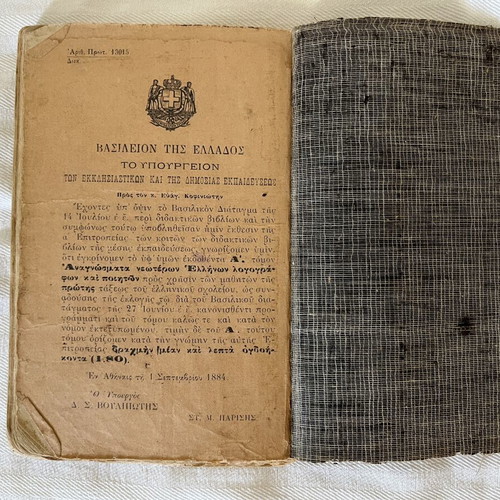 Ἀριθ. Πρωτ. 13015
Διεκ.
ΒΑΣΙΛΕΙΟΝ ΤΗΣ ΕΛΛΑΔΟΣ
ΤΟ ΥΠΟΥΡΓΕΙΟΝ
ΤΩΝ ΕΚΚΛΗΣΙΑΣΤΙΚΩΝ ΚΑΙ ΤΗΣ ΔΗΜΟΣΙΑΣ ΕΚΠΑΙΔΕΥΣΕΩΣ
Πρὸς τὸν κ. Εὐάγ. Κοφινιώτην
Ἔχοντες ὑπ' ὄψιν τὸ Βασιλικὸν Διάταγμα τῆς
14 Ἰουλίου ἐ. ἔ. περὶ διδακτικῶν βιβλίων καὶ τὴν
συμφώνως τούτῳ ὑποβληθεῖσαν ἡμῖν ἔκθεσιν τῆς
α΄ Ἐπιτροπείας τῶν κριτῶν τῶν διδακτικῶν βι-
βλίων τῆς μέσης ἐκπαιδεύσεως, γνωρίζομεν ὑμῖν,
ὅτι ἐγκρίνομεν τὸ ὑφ' ὑμῶν ἐκδοθέντα Α΄. τόμον
Ἀναγνώσματα νεωτέρων Ἑλλήνων λογογρά-
φων καὶ ποιητῶν πρὸς χρῆσιν τῶν μαθητῶν τῆς
πρώτης τάξεως τοῦ ἑλληνικοῦ σχολείου, ὡς συμ-
φούσης τῆς ἐκλογῆς τῷ διὰ τοῦ Βασιλικοῦ δια-
τάγματος τῆς 27 Ἰουνίου ἐ. ἔ. κανονισθέντι προ-
γράμματι καὶ τοῦ τόμου καλῶς τε καὶ κατὰ τὸν
νόμον ἐκτετυπωμένου. τιμὴν δὲ τοῦ Α΄. τούτου
τόμου ὁρίζομεν κατὰ τὴν γνώμην τῆς αὐτῆς Ἐ-
πιτροπείας δραχμὴν μίαν καὶ λεπτὰ ὀγδοή-
κοντα (1.80).
Ἐν Ἀθήναις τῇ 1 Σεπτεμβρίου 1884
Ὁ Ὑπουργὸς
Δ. Σ. ΒΟΥΛΠΙΩΤΗΣ
ΣΤ. Μ. ΠΑΡΙΣΗΣ